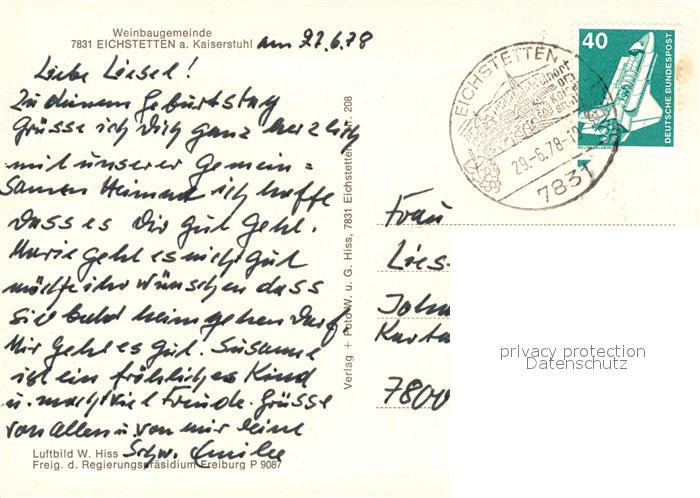 Weinbaugemeinde
7831 EICHSTETTEN a. Kaiserstuhl am 27.6.78
Liebe Liesel!
Zu deinem Geburtstag
Grüsse ich Dich ganz herzlich
mit unserer Gemein=
samen Heimat ich hoffe
dass es Dir gut geht.
Marie geht es nicht gut
möchte ihr wünschen dass
sie bald heimgehen darf
Mir geht es gut. Susanne
ist ein fröhliches Kind
u. macht viel Freude. Grüsse
von allen u. von mir deine
Schw. Emilie
Luftbild W. Hiss
Freig. d. Regierungspräsidium Freiburg P 9087
Verlag + Foto W. u. G. Hiss, 7831 Eichstetten Nr. 208
EICHSTETTEN
29.-6.78-
7831
40
DEUTSCHE BUNDESPOST
Frau
Lies
Joh
Karta
7800
privacy protection
Datenschutz